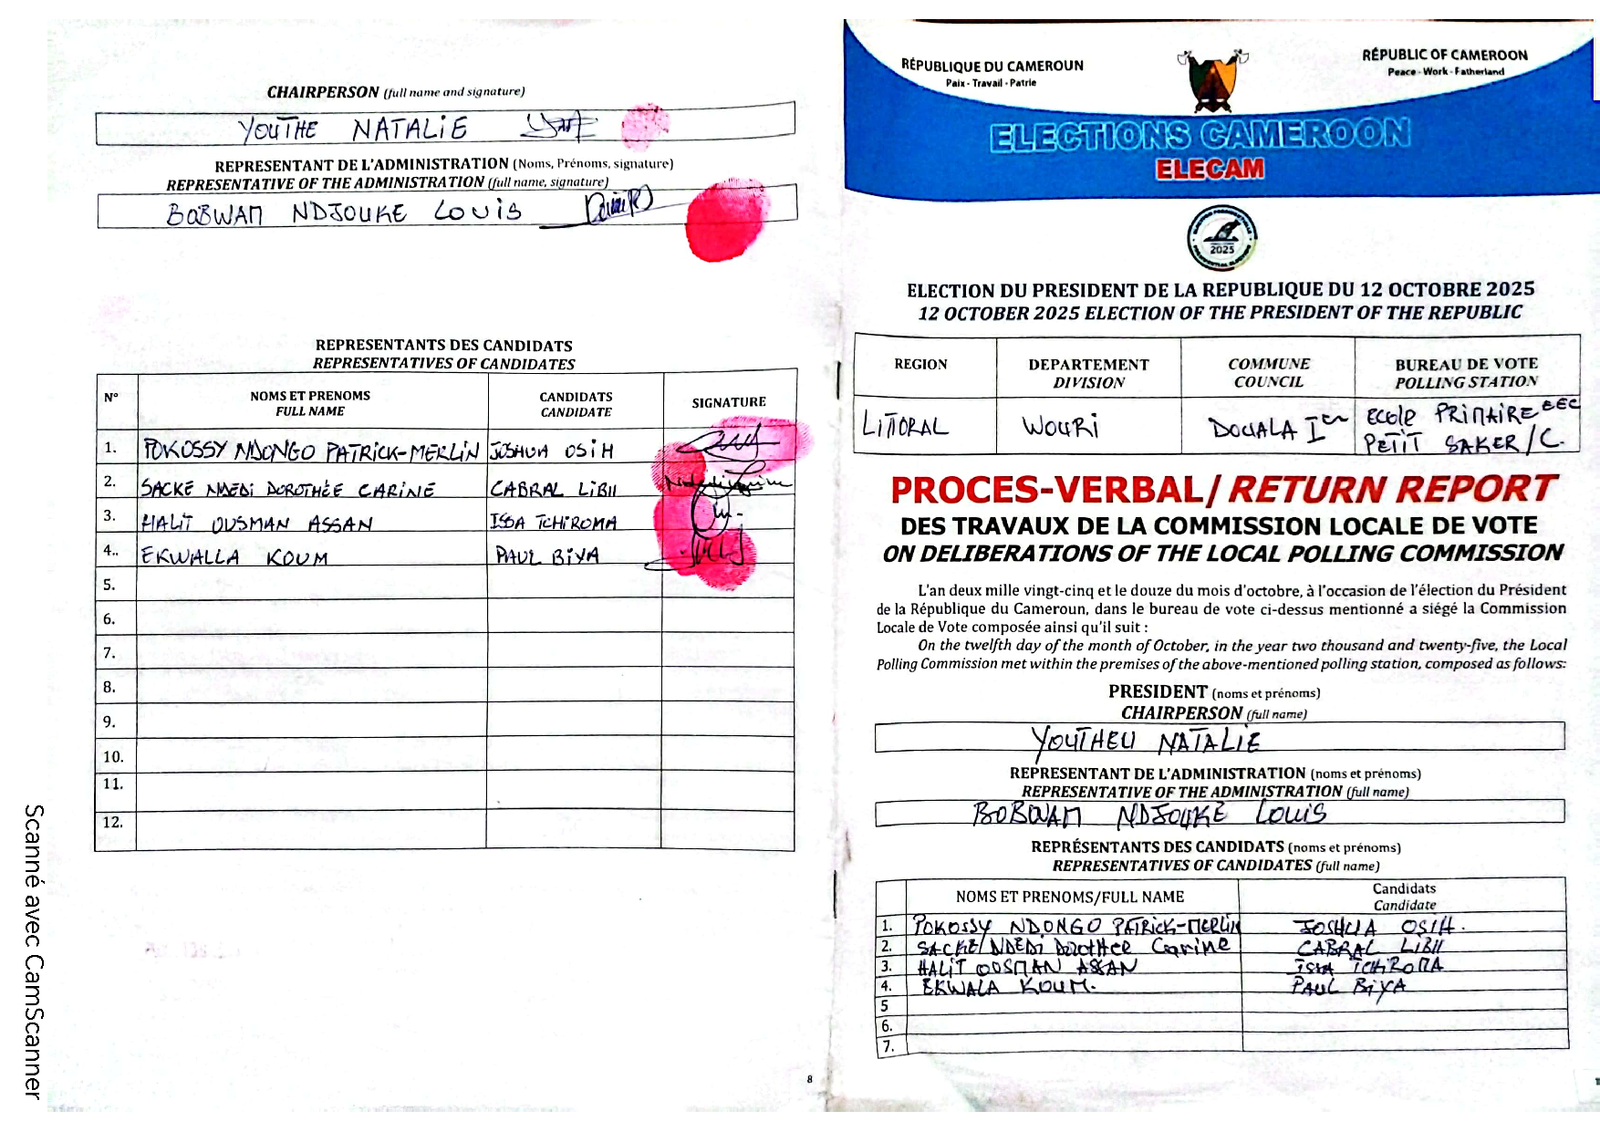 CHAIRPERSON (full name and signature)
YOUTHE NATALIE
REPRESENTANT DE L'ADMINISTRATION (Noms, Prénoms, signature)
REPRESENTATIVE OF THE ADMINISTRATION (full name, signature)
BOBWAM NDJOUKE LOUIS
REPRESENTANTS DES CANDIDATS
REPRESENTATIVES OF CANDIDATES
N° NOMS ET PRENOMS CANDIDATS SIGNATURE
FULL NAME CANDIDATE
1. POKOSSY NDONGO PATRICK-MERLIN JOSHUA OSIH
2. SACKE NDEDI DOROTHÉE CARINE CABRAL LIBII
3. HALIT OUSMAN ASSAN ISSA TCHIROMA
4.. EKWALLA KOUM PAUL BIYA
5.
6.
7.
8.
9.
10.
11.
12.
8
Scanné avec CamScanner
RÉPUBLIQUE DU CAMEROUN
Paix - Travail - Patrie
RÉPUBLIC OF CAMEROON
Peace - Work - Fatherland
ELECTIONS CAMEROON
ELECAM
2025
ELECTION DU PRESIDENT DE LA REPUBLIQUE DU 12 OCTOBRE 2025
12 OCTOBER 2025 ELECTION OF THE PRESIDENT OF THE REPUBLIC
REGION DEPARTEMENT COMMUNE BUREAU DE VOTE
DIVISION COUNCIL POLLING STATION
LITTORAL WOURI DOUALA Ier ECOLE PRIMAIRE EEC
PETIT SAKER/C.
PROCES-VERBAL/ RETURN REPORT
DES TRAVAUX DE LA COMMISSION LOCALE DE VOTE
ON DELIBERATIONS OF THE LOCAL POLLING COMMISSION
L'an deux mille vingt-cinq et le douze du mois d'octobre, à l'occasion de l'élection du Président
de la République du Cameroun, dans le bureau de vote ci-dessus mentionné a siégé la Commission
Locale de Vote composée ainsi qu'il suit :
On the twelfth day of the month of October, in the year two thousand and twenty-five, the Local
Polling Commission met within the premises of the above-mentioned polling station, composed as follows:
PRESIDENT (noms et prénoms)
CHAIRPERSON (full name)
YOUTHEU NATALIE
REPRESENTANT DE L'ADMINISTRATION (noms et prénoms)
REPRESENTATIVE OF THE ADMINISTRATION (full name)
BOBWAM NDJOUKE LOUIS
REPRÉSENTANTS DES CANDIDATS (noms et prénoms)
REPRESENTATIVES OF CANDIDATES (full name)
NOMS ET PRENOMS/FULL NAME Candidats
Candidate
1. POKOSSY NDONGO PATRICK-MERLIN JOSHUA OSIH.
2. SACKE NDEDI DOROTHEE Carine CABRAL LIBII
3. HALIT OUSMAN ASSAN ISSA TCHIROMA
4. EKWALA KOUM. PAUL BIYA
5
6.
7.